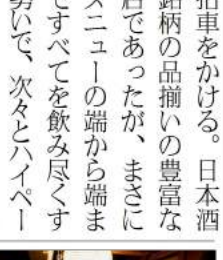 拍車をかける。日本酒
銘柄の品揃いの豊富な
店であったが、まさに
メニューの端から端ま
ですべてを飲み尽くす
勢いで、次々とハイペー